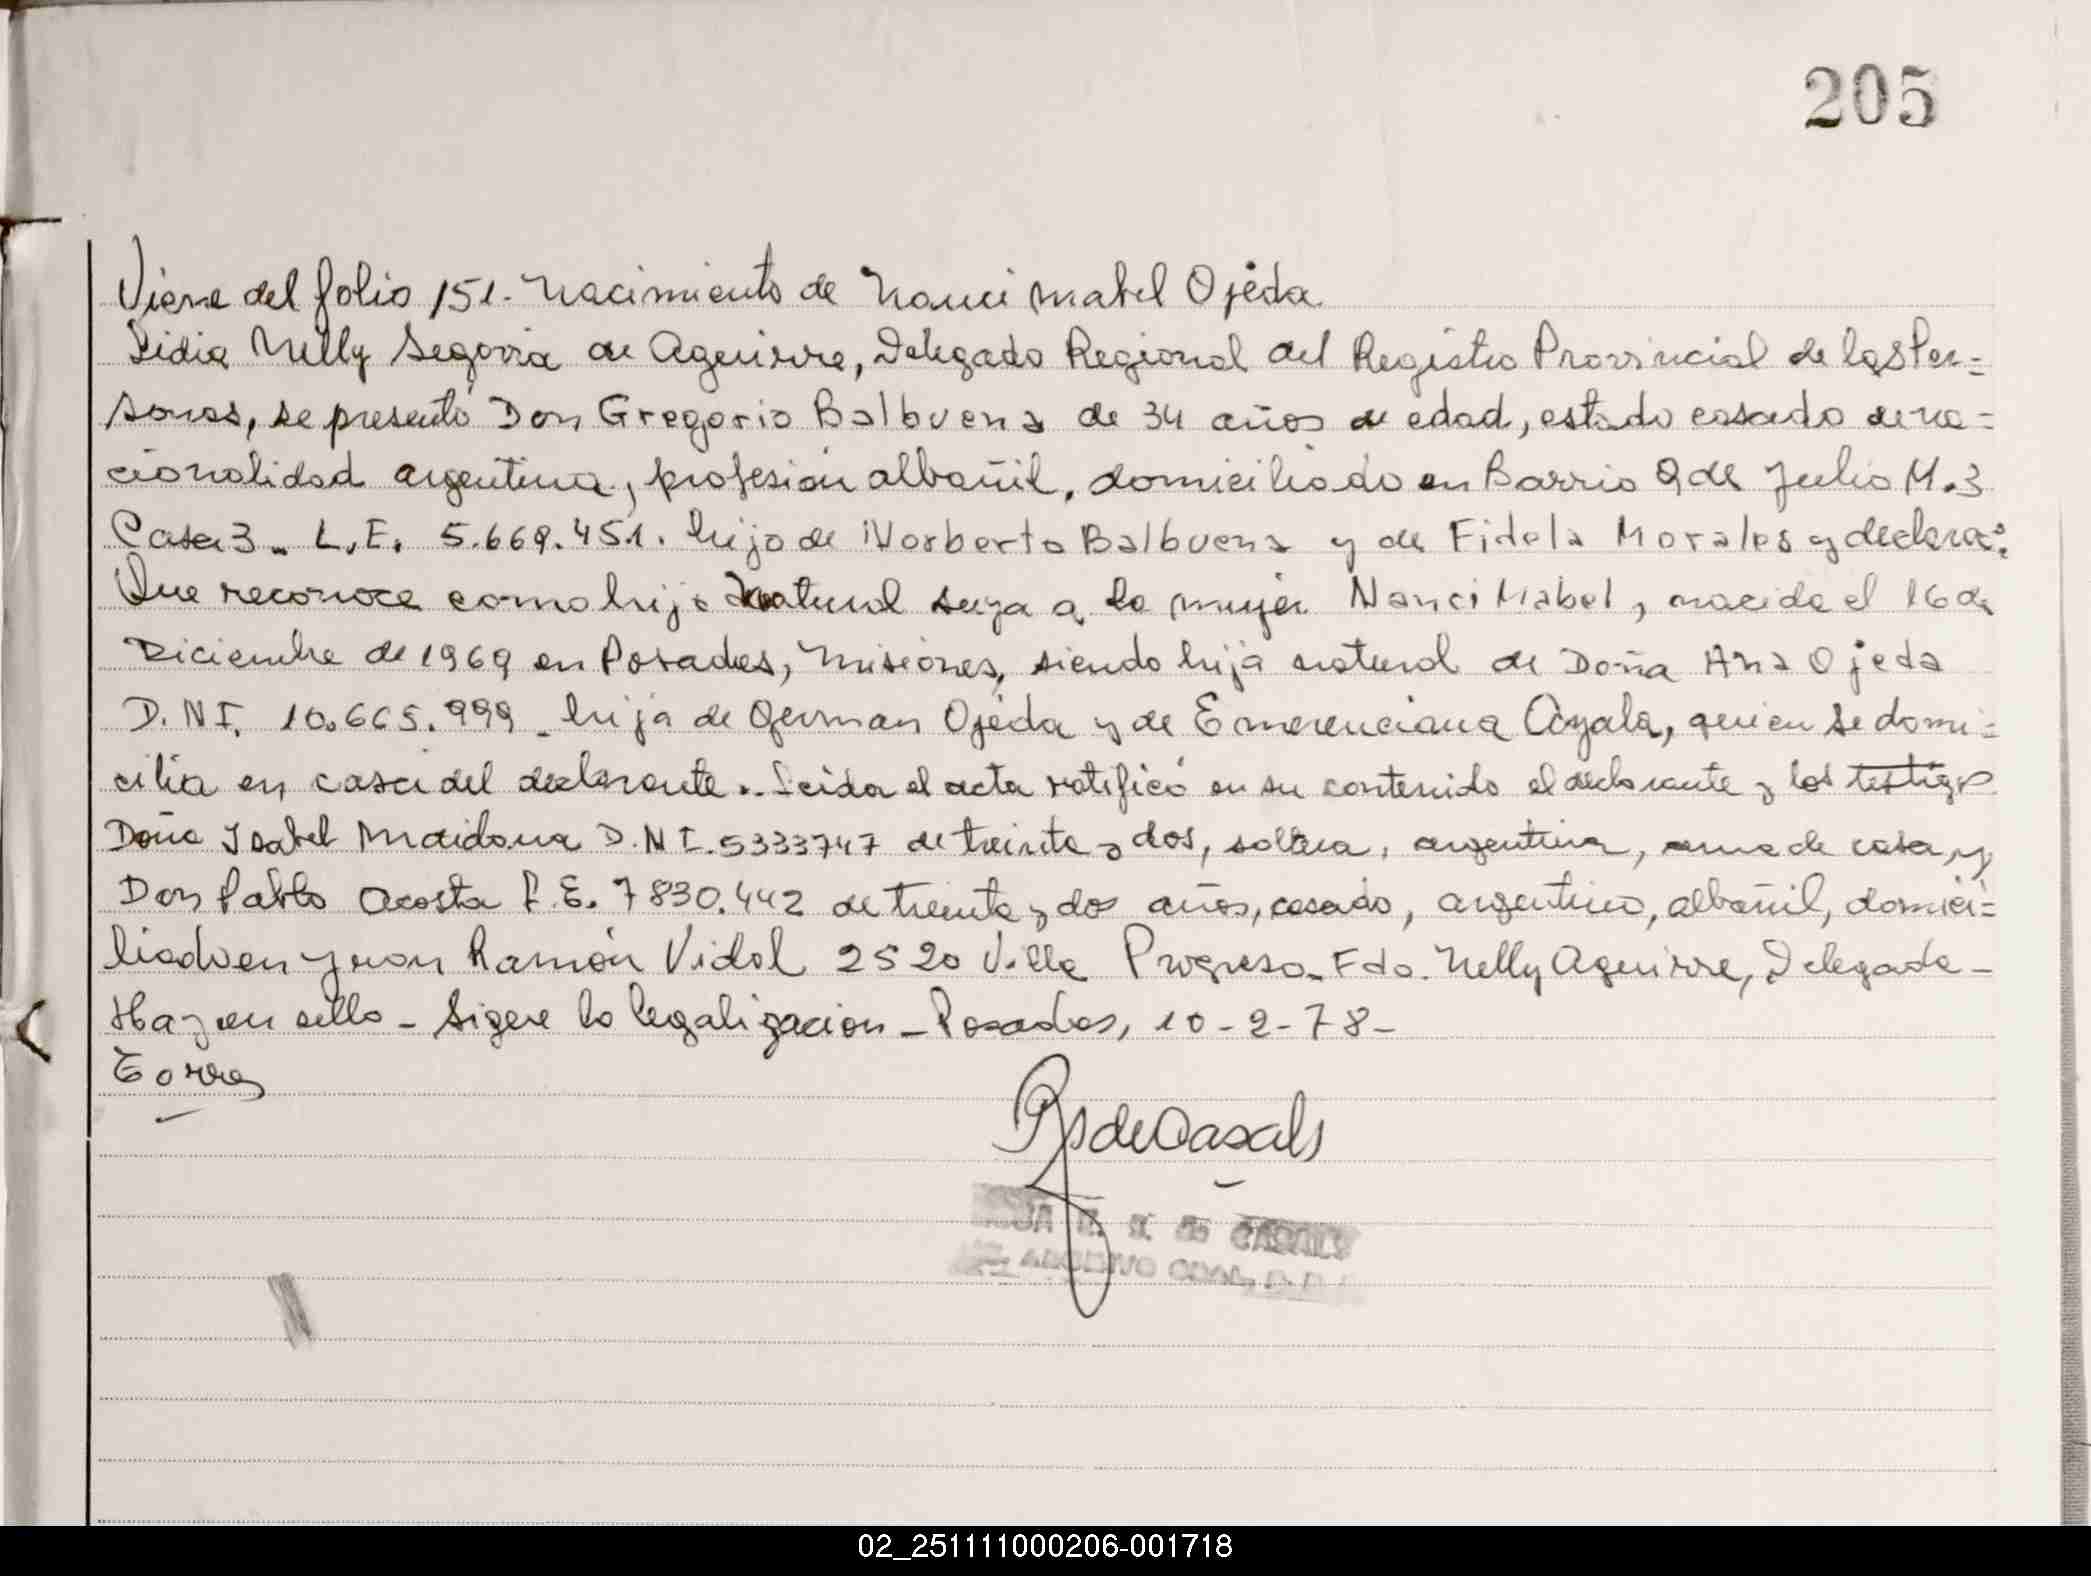 205
Viene del folio 151. Nacimiento de Nanci Mabel Ojeda
Lidia Nelly Segovia de Aguirre, Delegado Regional del Registro Provincial de las Per=
sonas, se presentó Don Gregorio Balbuena de 34 años de edad, estado casado de na=
cionalidad argentina, profesión albañil, domiciliado en Barrio 9 de Julio M.3
Casa 3. L.E. 5.669.451. hijo de Norberto Balbuena y de Fidela Morales y declara:
Que reconoce como hija natural suya a la mujer Nanci Mabel, nacida el 16 de
Diciembre de 1969 en Posadas, Misiones, siendo hija natural de Doña Ana Ojeda
D.N.I. 10.665.999. hija de German Ojeda y de Emerenciana Ayala, quien se domi=
cilia en casa del declarante.. Leida el acta ratificó en su contenido el declarante y los testigos
Doña Isabel Maidana D.N.I. 5333747 de treinta y dos, soltera, argentina, ama de casa, y
Don Pablo Acosta L.E. 7830.442 de treinta y dos años, casado, argentino, albañil, domici=
liado en Juan Ramón Vidal 2520 Villa Progreso. Fdo. Nelly Aguirre, Delegada -
Hay un sello - Sigue la legalizacion - Posadas, 10-2-78-
Torres
de Casals
02_251111000206-001718